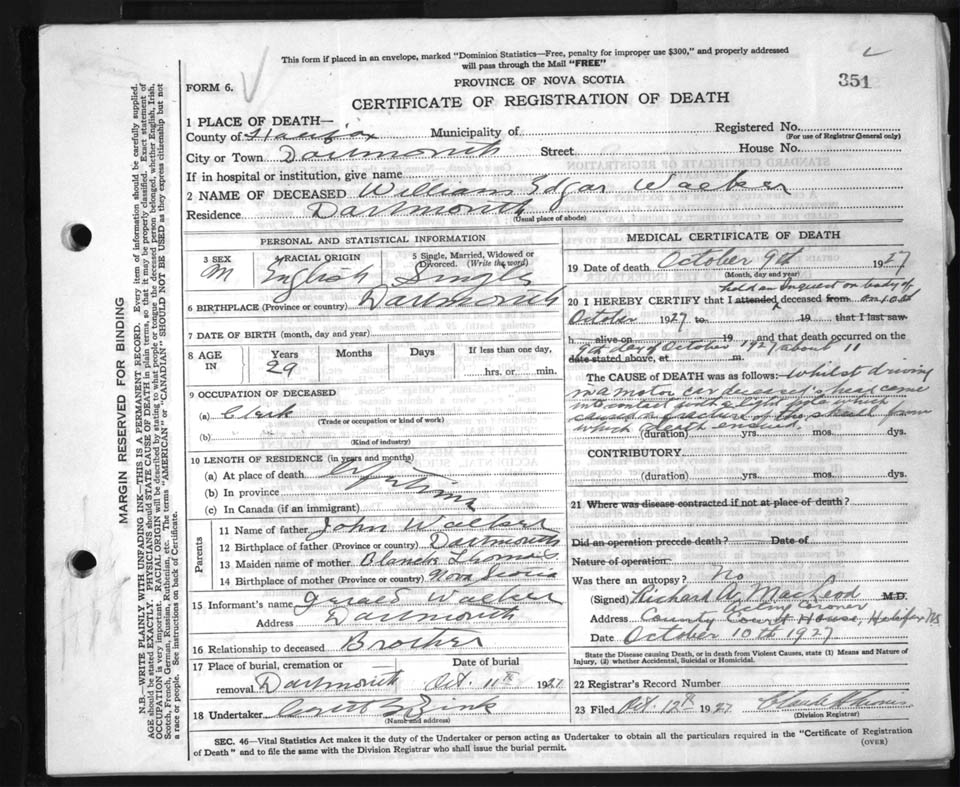 This form if placed in an envelope, marked "Dominion Statistics—Free, penalty for improper use $300," and properly addressed
will pass through the Mail "FREE"
351
FORM 6.
PROVINCE OF NOVA SCOTIA
CERTIFICATE OF REGISTRATION OF DEATH
1 PLACE OF DEATH—
County of Halifax Municipality of Registered No.
(For use of Registrar General only)
City or Town Dartmouth Street House No.
If in hospital or institution, give name
2 NAME OF DECEASED William Edgar Walker
Residence Dartmouth
(Usual place of abode)
PERSONAL AND STATISTICAL INFORMATION
3 SEX 4 RACIAL ORIGIN 5 Single, Married, Widowed or Divorced. (Write the word)
M English Single
6 BIRTHPLACE (Province or country) Dartmouth
7 DATE OF BIRTH (month, day and year)
8 AGE IN Years Months Days If less than one day,
29 hrs. or min.
9 OCCUPATION OF DECEASED
(a) Clerk
(Trade or occupation or kind of work)
(b)
(Kind of industry)
10 LENGTH OF RESIDENCE (in years and months)
(a) At place of death
(b) In province
(c) In Canada (if an immigrant)
Parents
11 Name of father John Walker
12 Birthplace of father (Province or country) Dartmouth
13 Maiden name of mother Blanch Thomas
14 Birthplace of mother (Province or country) Nova Scotia
15 Informant's name Gerald Walker
Address Dartmouth
16 Relationship to deceased Brother
17 Place of burial, cremation or removal Date of burial
Dartmouth Oct. 11th 1927
18 Undertaker
(Name and address)
MEDICAL CERTIFICATE OF DEATH
19 Date of death October 9th 1927
(Month, day and year)
held an Inquest on body of
20 I HEREBY CERTIFY that I attended deceased from on 10th
October 1927 to 19 that I last saw
h alive on 19 and that death occurred on the
9th day of October 1927 about 11
date stated above, at m.
The CAUSE of DEATH was as follows: Whilst driving
in a motor car deceased's head came
in contact with a light pole which
caused a fracture of the skull from
which death ensued.
(duration) yrs. mos. dys.
CONTRIBUTORY.
(duration) yrs. mos. dys.
21 Where was disease contracted if not at place of death?
Did an operation precede death? Date of
Nature of operation.
Was there an autopsy? No
(Signed) Richard A. MacLeod M.D.
Acting Coroner
Address County Court House, Halifax NS
Date October 10th 1927
State the Disease causing Death, or in death from Violent Causes, state (1) Means and Nature of
Injury, (2) whether Accidental, Suicidal or Homicidal.
22 Registrar's Record Number
23 Filed Oct. 12th 1927
(Division Registrar)
SEC. 46—Vital Statistics Act makes it the duty of the Undertaker or person acting as Undertaker to obtain all the particulars required in the "Certificate of Registration
of Death" and to file the same with the Division Registrar who shall issue the burial permit.
(OVER)
MARGIN RESERVED FOR BINDING
N.B.—WRITE PLAINLY WITH UNFADING INK—THIS IS A PERMANENT RECORD. Every item of information should be carefully supplied.
AGE should be stated EXACTLY. PHYSICIANS should STATE CAUSE OF DEATH in plain terms, so that it may be properly classified. Exact statement of
OCCUPATION is very important. RACIAL ORIGIN will be described by stating to what people or tongue the deceased person belonged, whether English, Irish,
Scotch, French, German, Russian, Ruthenian, etc. The terms "AMERICAN" or "CANADIAN" SHOULD NOT BE USED as they express citizenship but not
a race or people. See instructions on back of Certificate.